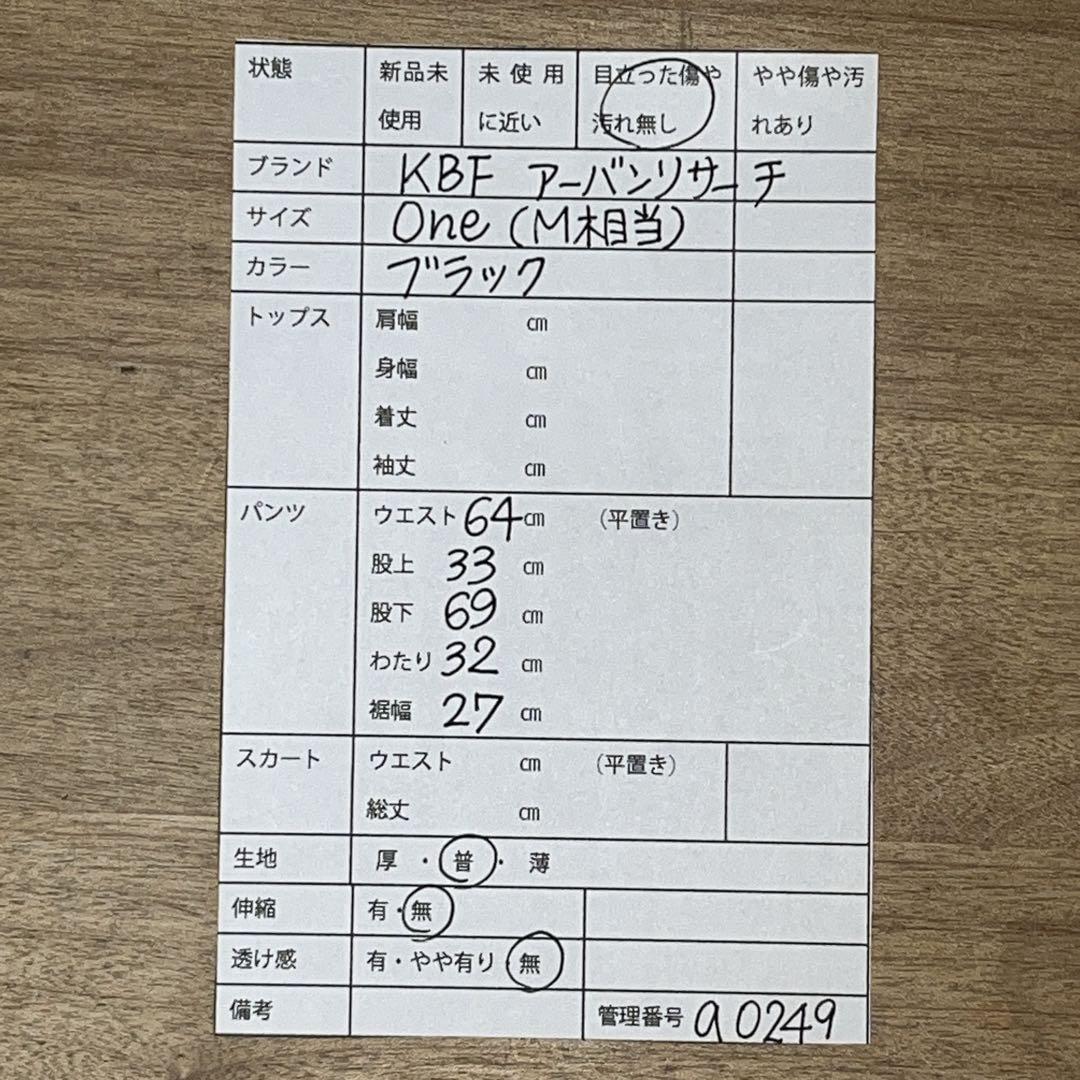 状態 新品未 未使用 目立った傷や やや傷や汚
使用 に近い 汚れ無し れあり
ブランド KBF アーバンリサーチ
サイズ One (M相当)
カラー ブラック
トップス 肩幅 cm
身幅 cm
着丈 cm
袖丈 cm
パンツ ウエスト 64 cm (平置き)
股上 33 cm
股下 69 cm
わたり 32 cm
裾幅 27 cm
スカート ウエスト cm (平置き)
総丈 cm
生地 厚・普・薄
伸縮 有・無
透け感 有・やや有り・無
備考 管理番号 a0249